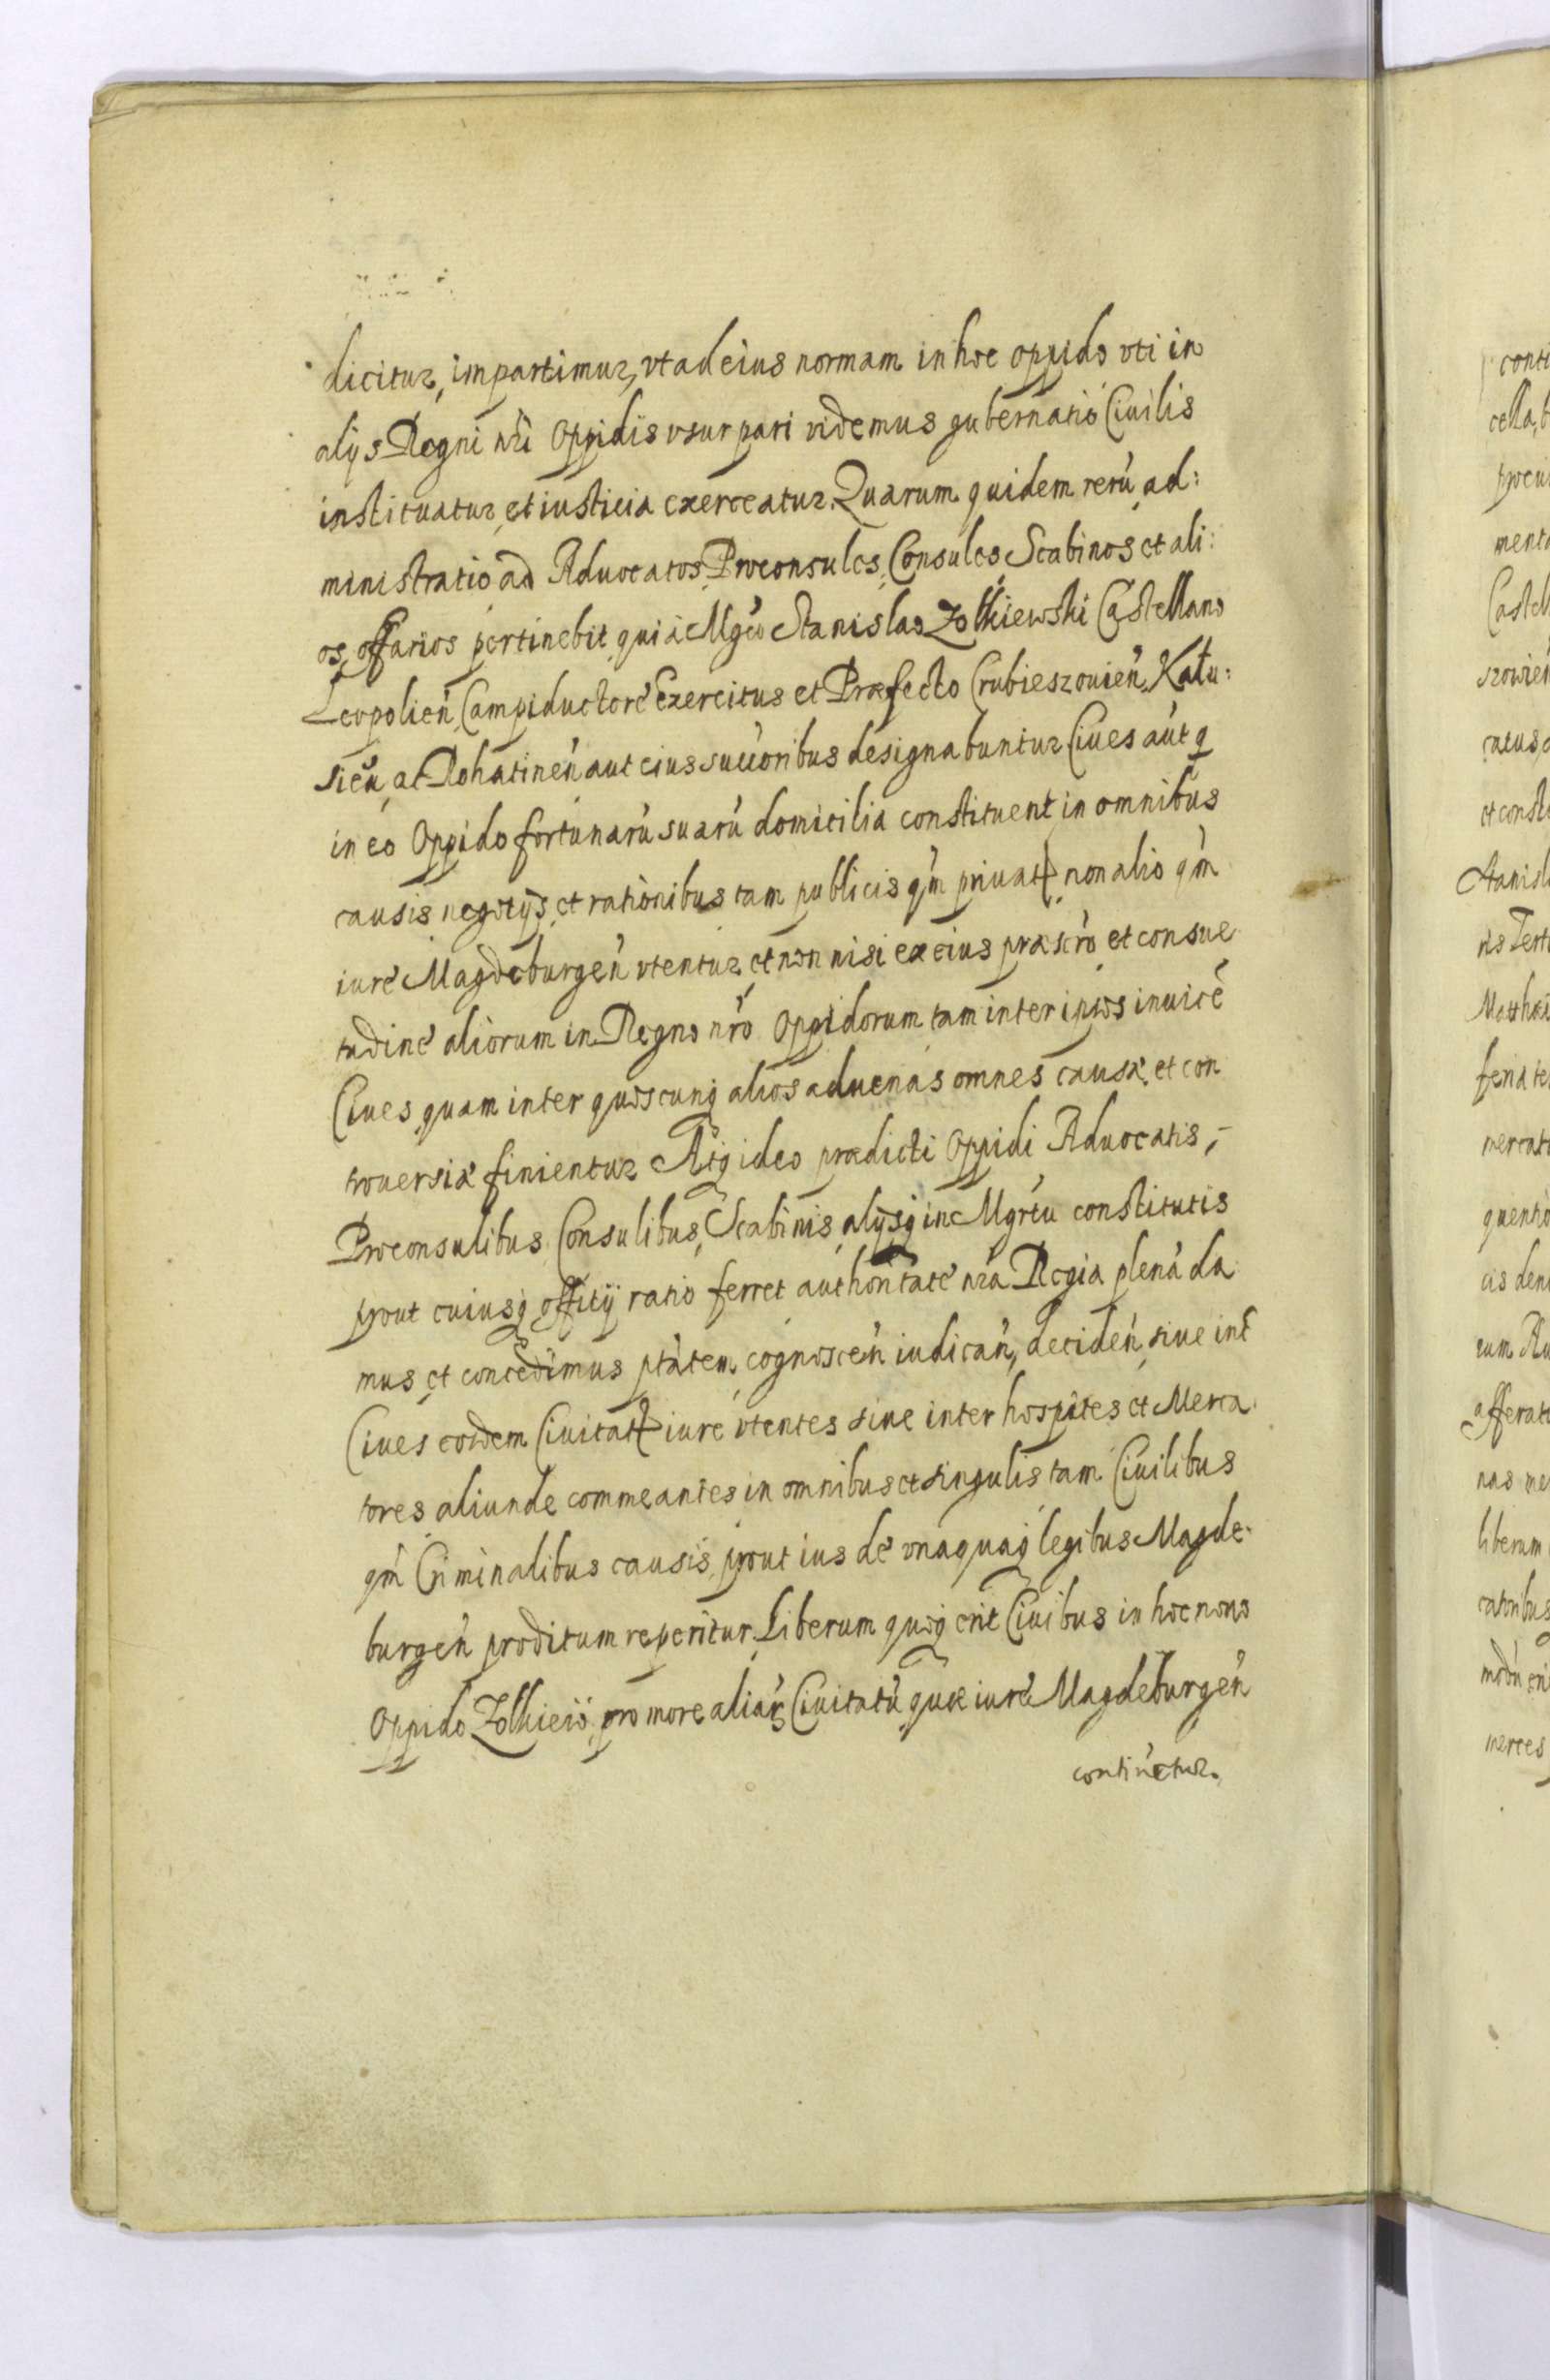 dicitur, impartimur, vt ad eius normam in hoc oppido vti in
alijs Regni nri Oppidis vsurpari videmus gubernatio Ciuilis
instituatur, et iusticia exerceatur. Quarum quidem rerú ad:
ministratio ad Aduocatos, Proconsules, Consules, Scabinos, et ali:
os, offarios pertinebit, qui à Mgco Stanislao Zolkiewski Castellano
Leopolień, Campiductore Exercitus et Præfecto Crubieszouień, Kału:
sień, ac Rohatineń aut eius succoribus designabuntur Ciues aút q
in eo Oppido fortunarú suarú domicilia constituent, in omnibus
causis negotijs, et rationibus tam publicis qm priuat, non alio qm
iure Magdeburgeń vtentur, et non nisi ex eius præscro, et consue
tudine aliorum in Regno nro Oppidorum tam inter ipsos inuicē
Ciues, quam inter quoscunq alios aduenas omnes causæ, et con
trouersiæ finientur Atq ideo prædicti Oppidi Aduocatis,
Proconsulibus, Consulibus, Scabinis, alijsq in Mgrtu constitutis
prout cuiusq offitij ratio ferret authoritate nra Regia plenà da
mus, et concedimus ptatem, cognosceń iudicań, decideń, siue int
Ciues eodem Ciuitat iure vtentes siue inter hospites et Merca
tores aliunde commeantes in omnibus et singulis tam Ciuilibus
qm Criminalibus causis, prout ius de vnaquaq legibus Magde
burgeń proditum reperitur. Liberum quoq erit Ciuibus in hoc nouo
Oppido Zolkiew, pro more aliar Ciuitatú quæ iure Magdeburgeń
continetur.